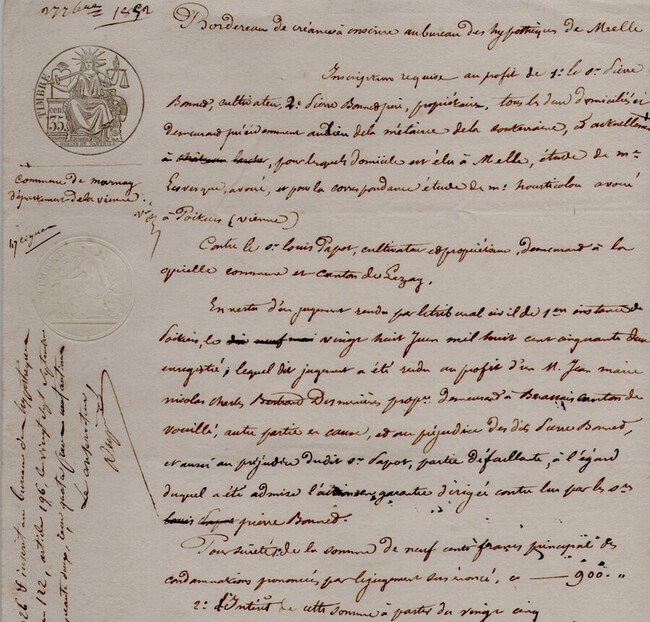 27 7bre 1852
Bordereau de créances à inscrire au bureau des hypothèques de Melle
TIMBRE
35
Inscription requise au profit de 1° le sr Pierre
Bonned, cultivateur, 2° Pierre Bonned père, propriétaire, tous les deux domiciliés et
demeurant précédemment au lieu de la métairie de la , et actuellement
à , pour lesquels domicile est élu à Melle, étude de me
, avoué, et pour la correspondance étude de me Hourticolou avoué
à Poitiers (Vienne)
Commune de marnay
département de la vienne
Contre le sr Louis Papot, cultivateur et propriétaire, demeurant à la
commune et canton de Lezay.
En vertu d'un jugement rendu par le tribunal civil de 1ère instance de
Poitiers, le dix neuf mai vingt huit Juin mil huit cent cinquante deux
enregistré; lequel dit jugement a été rendu au profit d'un M. Jean marie
nicolas Charles Bertrand Desmenières propre demeurant à canton de
Vouillé, autre partie en cause, et au préjudice des dits Pierre Bonned,
et aussi au préjudice du dit sr Papot, partie défaillante, à l'égard
duquel a été admise l'action en garantie dirigée contre lui par les srs
louis Papot pierre Bonned.
Pour sûreté 1° de la somme de neuf cents francs principal des
condamnations prononcées par le jugement sus énoncé, ci — 900. "
2° d'Intérêt de cette somme à partir du vingt cinq
inscrit au bureau des hypothèques
122, article 196, le vingt sept septembre
Le conservateur